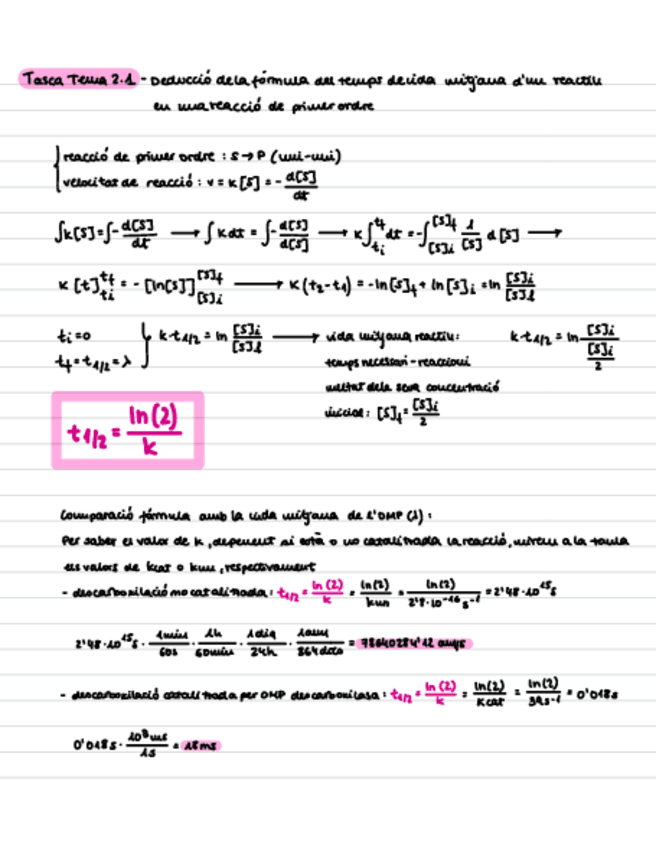 Tasca Tema 2.1 - Deducció de la fórmula del temps de vida mitjana d'un reactiu
en una reacció de primer ordre
reacció de primer ordre : S → P (uni-uni)
velocitat de reacció : v = k [S] = - d[S]/dt
∫k[S] = ∫- d[S]/dt → ∫ k dt = ∫- d[S]/[S] → k ∫ti^tf dt = - ∫[S]i^[S]f 1/[S] d[S] →
k [t]ti^tf = - [ln[S]][S]i^[S]f → k (t2-t1) = -ln[S]f + ln[S]i = ln [S]i/[S]f
ti = 0
tf = t1/2 = λ
k·t1/2 = ln [S]i/[S]f → vida mitjana reactiu:
temps necessari - reaccioni
meitat de la seva concentració
inicial: [S]f = [S]i/2
k·t1/2 = ln [S]i/([S]i/2)
t1/2 = ln(2)/k
Comparació fórmula amb la vida mitjana de l'OMP (λ) :
Per saber el valor de k, depenent si està o no catalitzada la reacció, mirem a la taula
els valors de kcat o kun, respectivament
- descarboxilació no catalitzada : t1/2 = ln(2)/k = ln(2)/kun = ln(2)/2'8·10^-16 s^-1 = 2'48·10^15 s
2'48·10^15 s · 1min/60s · 1h/60min · 1dia/24h · 1any/364dies = 78640284'12 anys
- descarboxilació catalitzada per OMP descarboxilasa : t1/2 = ln(2)/k = ln(2)/kcat = ln(2)/39s^-1 = 0'018s
0'018s · 10^3 ms/1s = 18ms